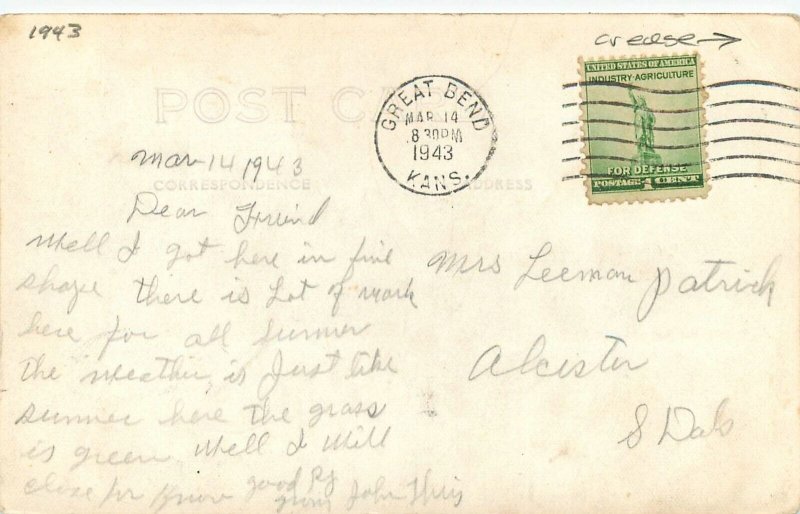 1943
crease →
POST CARD
GREAT BEND
MAR 14
8 30 PM
1943
KANS.
UNITED STATES OF AMERICA
INDUSTRY·AGRICULTURE
FOR DEFENSE
POSTAGE 1 CENT
CORRESPONDENCE
ADDRESS
Mar-14 1943
Dear Friend
Well I got here in fine
shape there is Lot of work
here for all summer
the weather is Just like
summer here the grass
is green Well I Will
close for Know good By
from John
Mrs Leeman Patrick
Alcester
S Dak